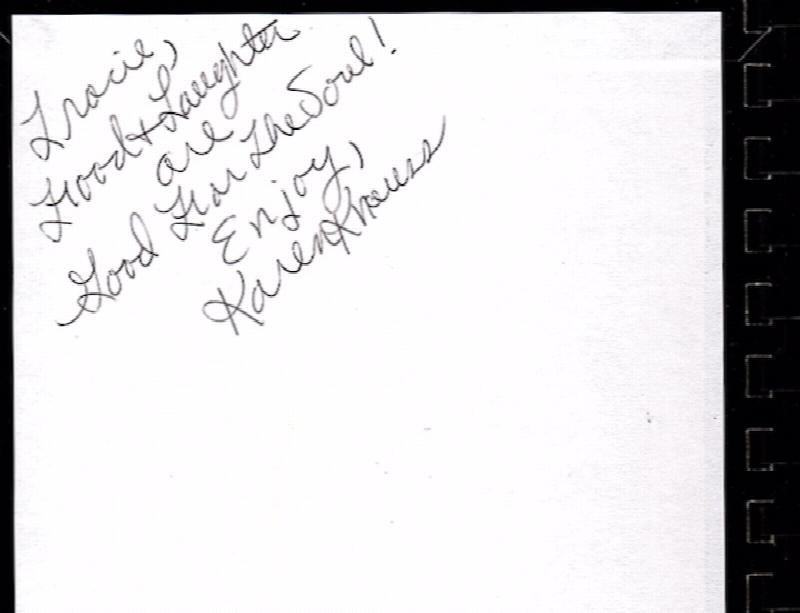 Tracie,
Food & Laughter
are
Good For The Soul!
Enjoy,
Karen Knauss